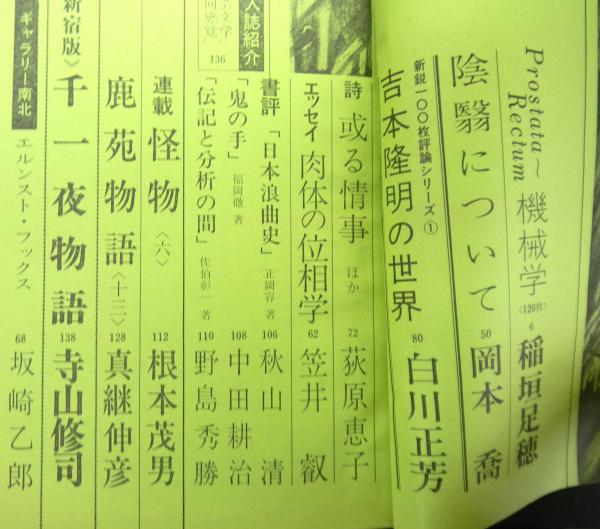 Prostata~
Rectum 機械学〈120枚〉 6 稲垣足穂
陰翳について 50 岡本 喬
新鋭一〇〇枚評論シリーズ①
吉本隆明の世界 80 白川正芳
詩 或る情事 ほか 72 荻原恵子
エッセイ 肉体の位相学 62 笠井 叡
書評 「日本浪曲史」 正岡容 著 106 秋山 清
「鬼の手」 福岡徹 著 108 中田耕治
「伝記と分析の間」 佐伯彰一 著 110 野島秀勝
人誌紹介
文学」
同感覚」
136
連載 怪物〈六〉 112 根本茂男
鹿苑物語〈十三〉 128 真継伸彦
新宿版〉千一夜物語 138 寺山修司
ギャラリー南北 エルンスト・フックス 68 坂崎乙郎